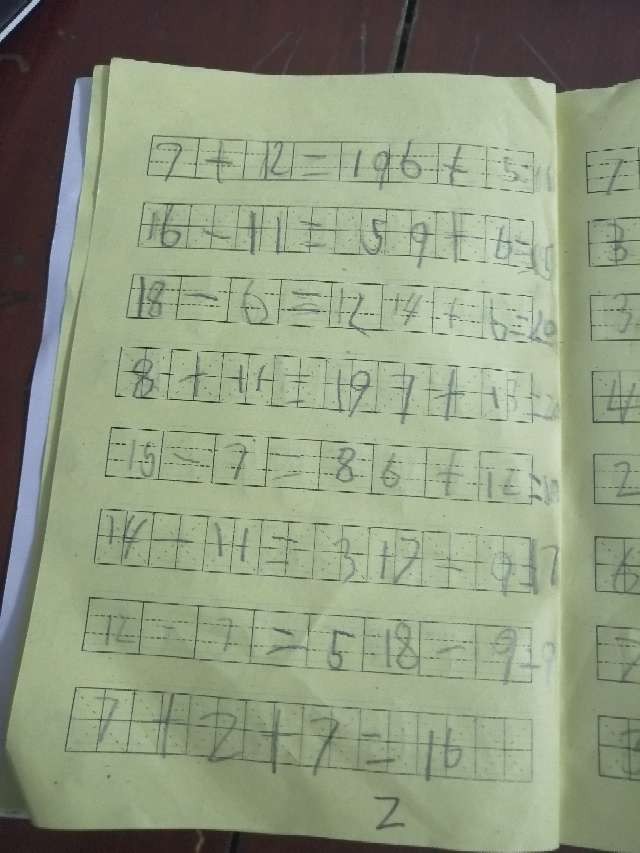 7 + 12 = 19 6 + 5 = 11
16 - 11 = 5 9 + 6 = 15
18 - 6 = 12 14 + 6 = 20
8 + 11 = 19 7 + 13 = 20
15 - 7 = 8 6 + 12 = 18
14 - 11 = 3 17 - 9 = 7
12 - 7 = 5 18 - 9 = 9
7 + 2 + 7 = 16
2
7
3
3
4
2
6
7